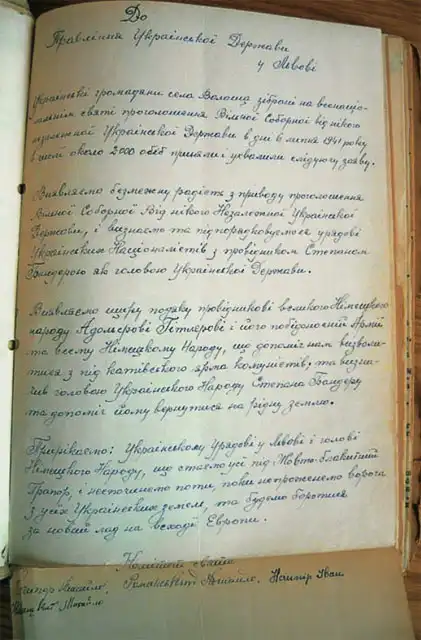 До
Правління Української Держави
у Львові
Українські громадяни села Волоща зібрані на всенаціо-
нальнім святі проголошення Вільної Соборної від нікого
незалежної Української Держави в дні 6 липня 1941 року
в числі около 2000 осіб приняли і ухвалили слідуючу заяву.
Виявляємо безмежну радість з приводу проголошення
Вільної Соборної Від нікого Незалежної Української
Держави, і визнаємо та підпорядковуємося урядові
Українських Націоналістів з провідником Степаном
Бандерою як головою Української Держави.
Виявляємо щиру подяку провідникові великого Німецкого
народу Адольфові Гітлерові і його побідоносній Армії
та всему Німецкому Народу, що допоміг нам визволи-
тися з під катівського ярма комуністів, та визна-
чив головою Українського Народу Степана Бандеру
та допоміг йому вернутися на рідну землю.
Прирікаємо: Українському Урядові у Львові і голові
Німецкого Народу, що стаємо усі під Жовто-блакитний
Прапор, і неспочинемо поти, поки непроженемо ворога
з усіх Українських земель, та будемо боротися
за новий лад на всході Европи.
Комітет свята
Михайло, Михайло, Іван
Михайло